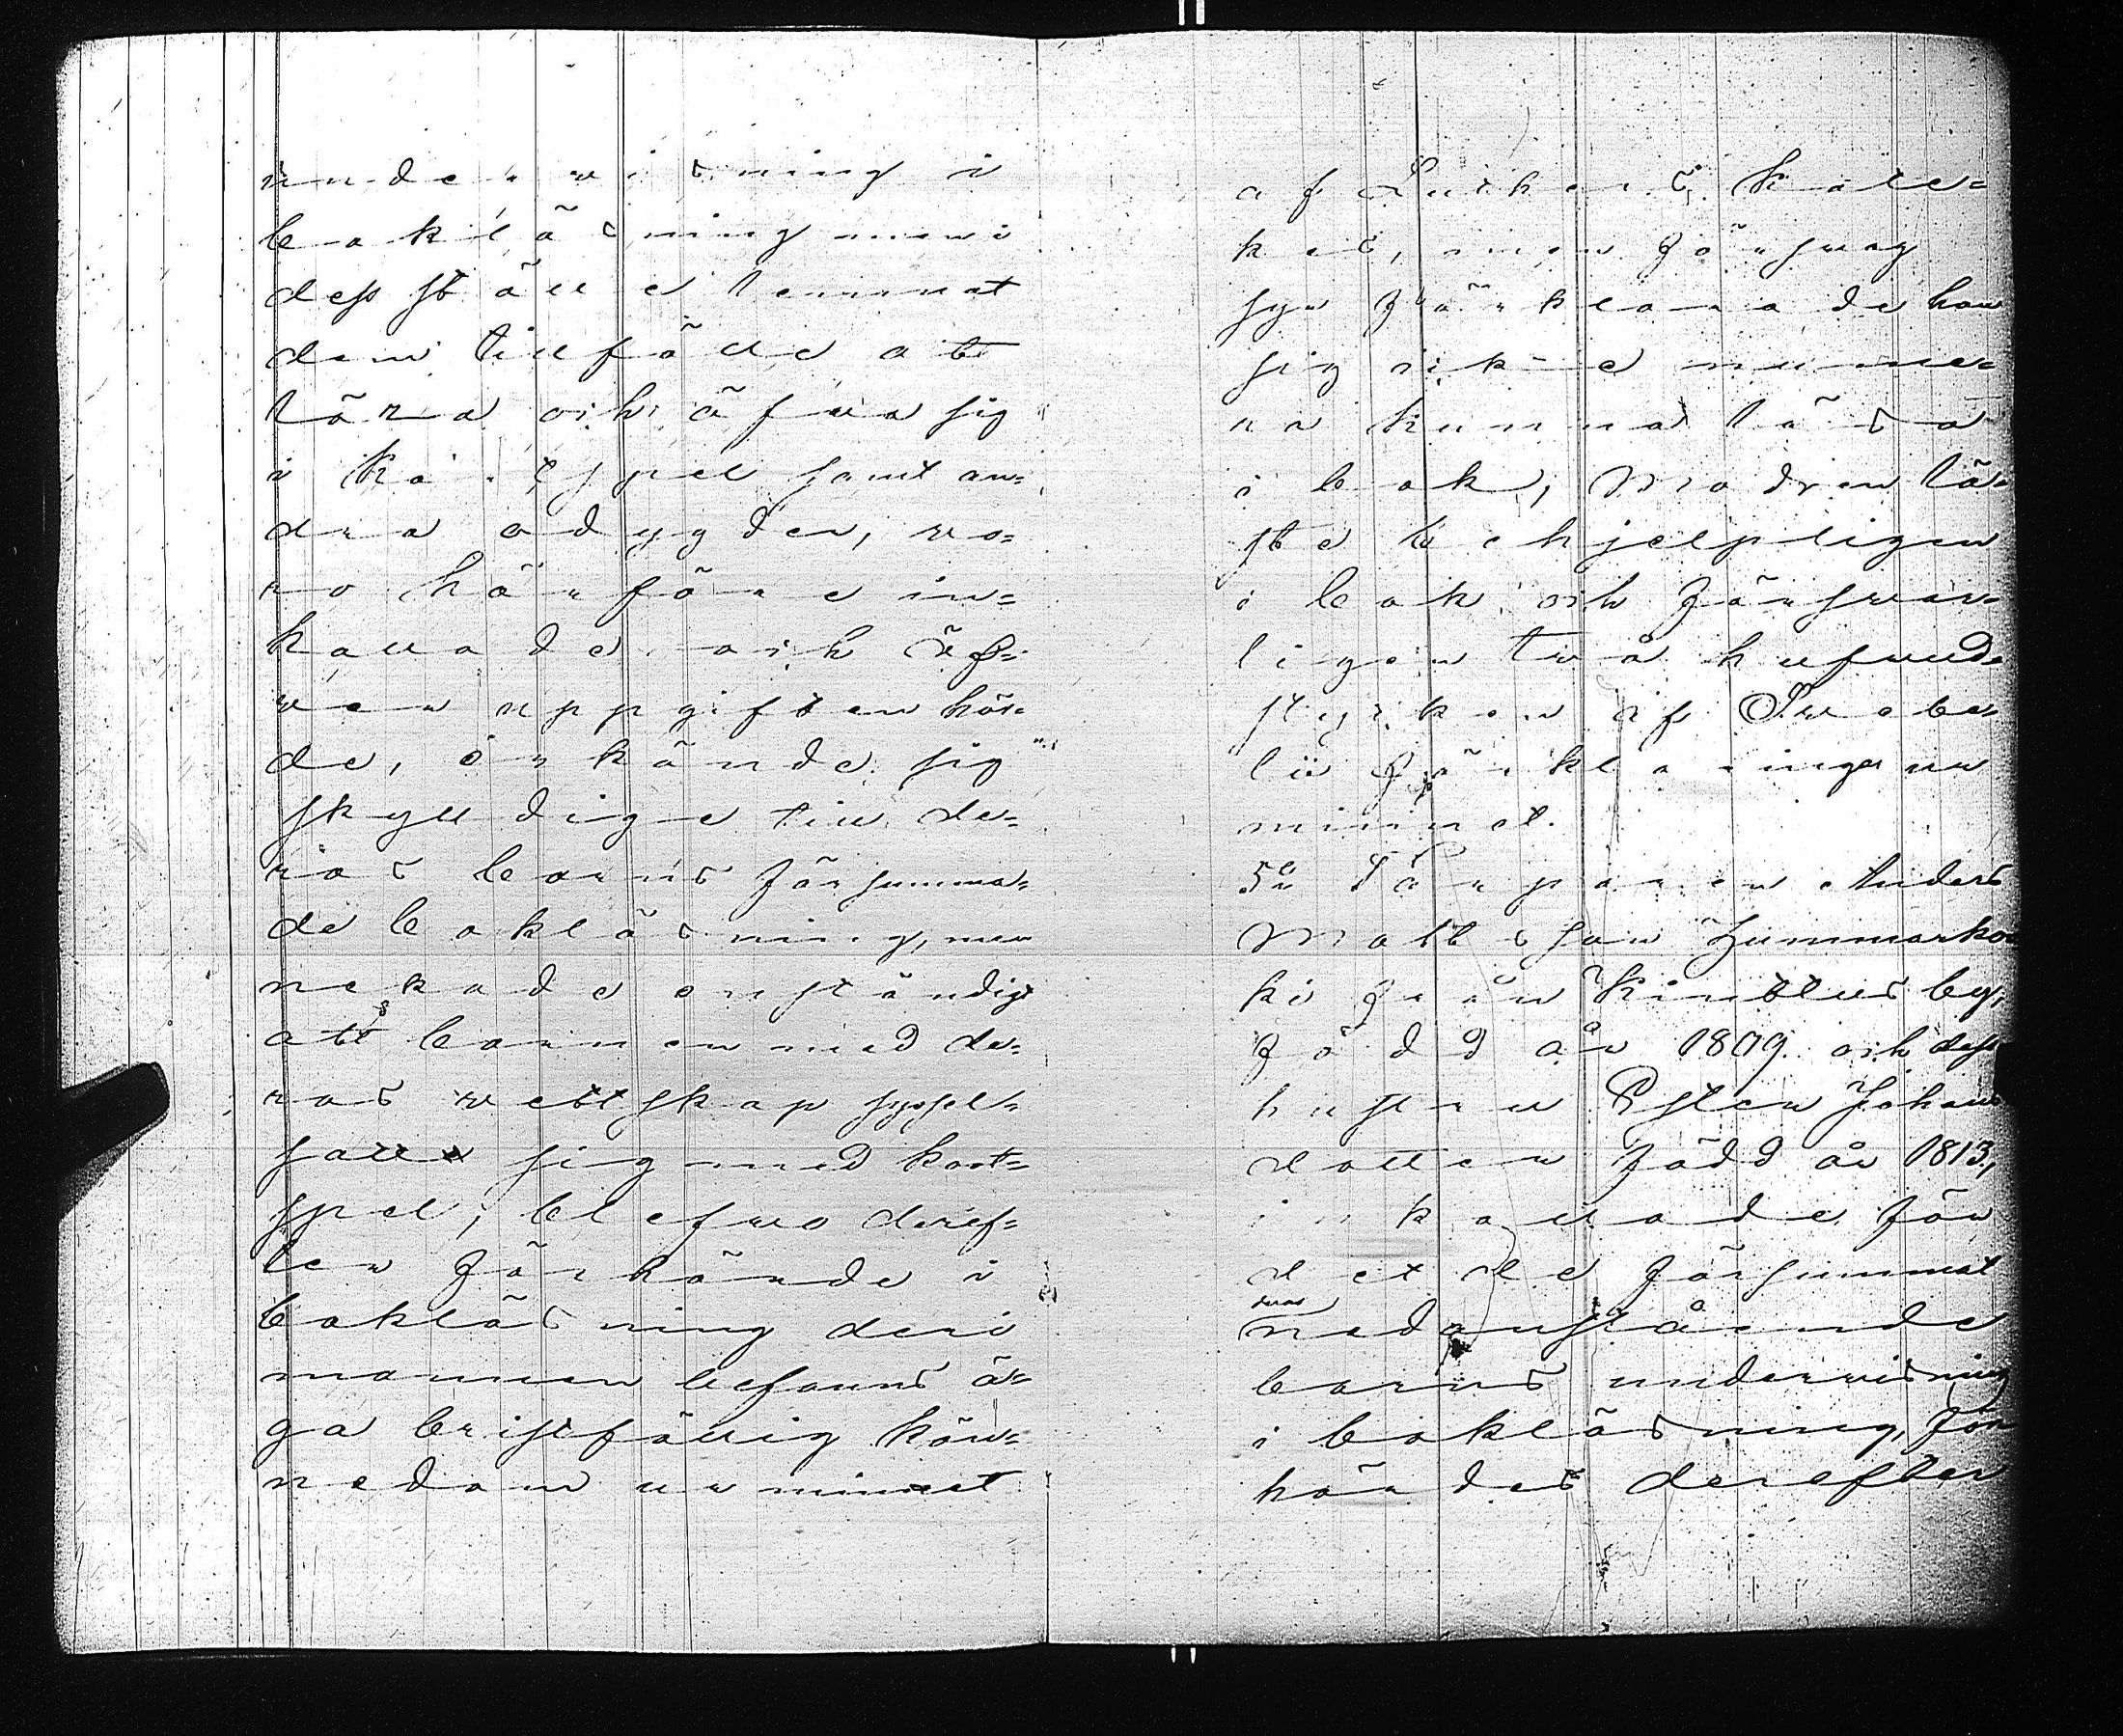 underwisning i
bokläsning men i
dess ställe lemnat
dem tillfälle att
lära och öfwa sig
i kortspel samt an=
dra odygder, wo=
ro härföre in=
kallade och öf=
wer uppgiften hör=
de, erkände sig
skyldige till de=
ras barns försumma=
de bokläsning, men
nekade enständigt
att barnen med de=
ras wettskap syssel=
satt sig med kort=
spel, blefwo deref=
ter förhörde i
bokläsning deri
mannen befanns ä=
ga bristfällig kän=
nedom ur minnet
af Luthers Kate=
kes, men för swag
syn förklarade han
sig icke nume=
ra kunna läsa
i bok, Modren lä=
ste behjelpligen
i bok och försvar=
ligen två hufwud=
stycken af Swebe=
lii förklaring ur
minnet.
5o Torparen Anders
Mattsson Hummarko=
ki från Kinttus by,
född år 1809 och dess
hustru Ester Johans
dotter född år 1813,
inkallade för
det de försummat
deras
nedanstående
barns underwisning
i bokläsning, för
hördes derefter